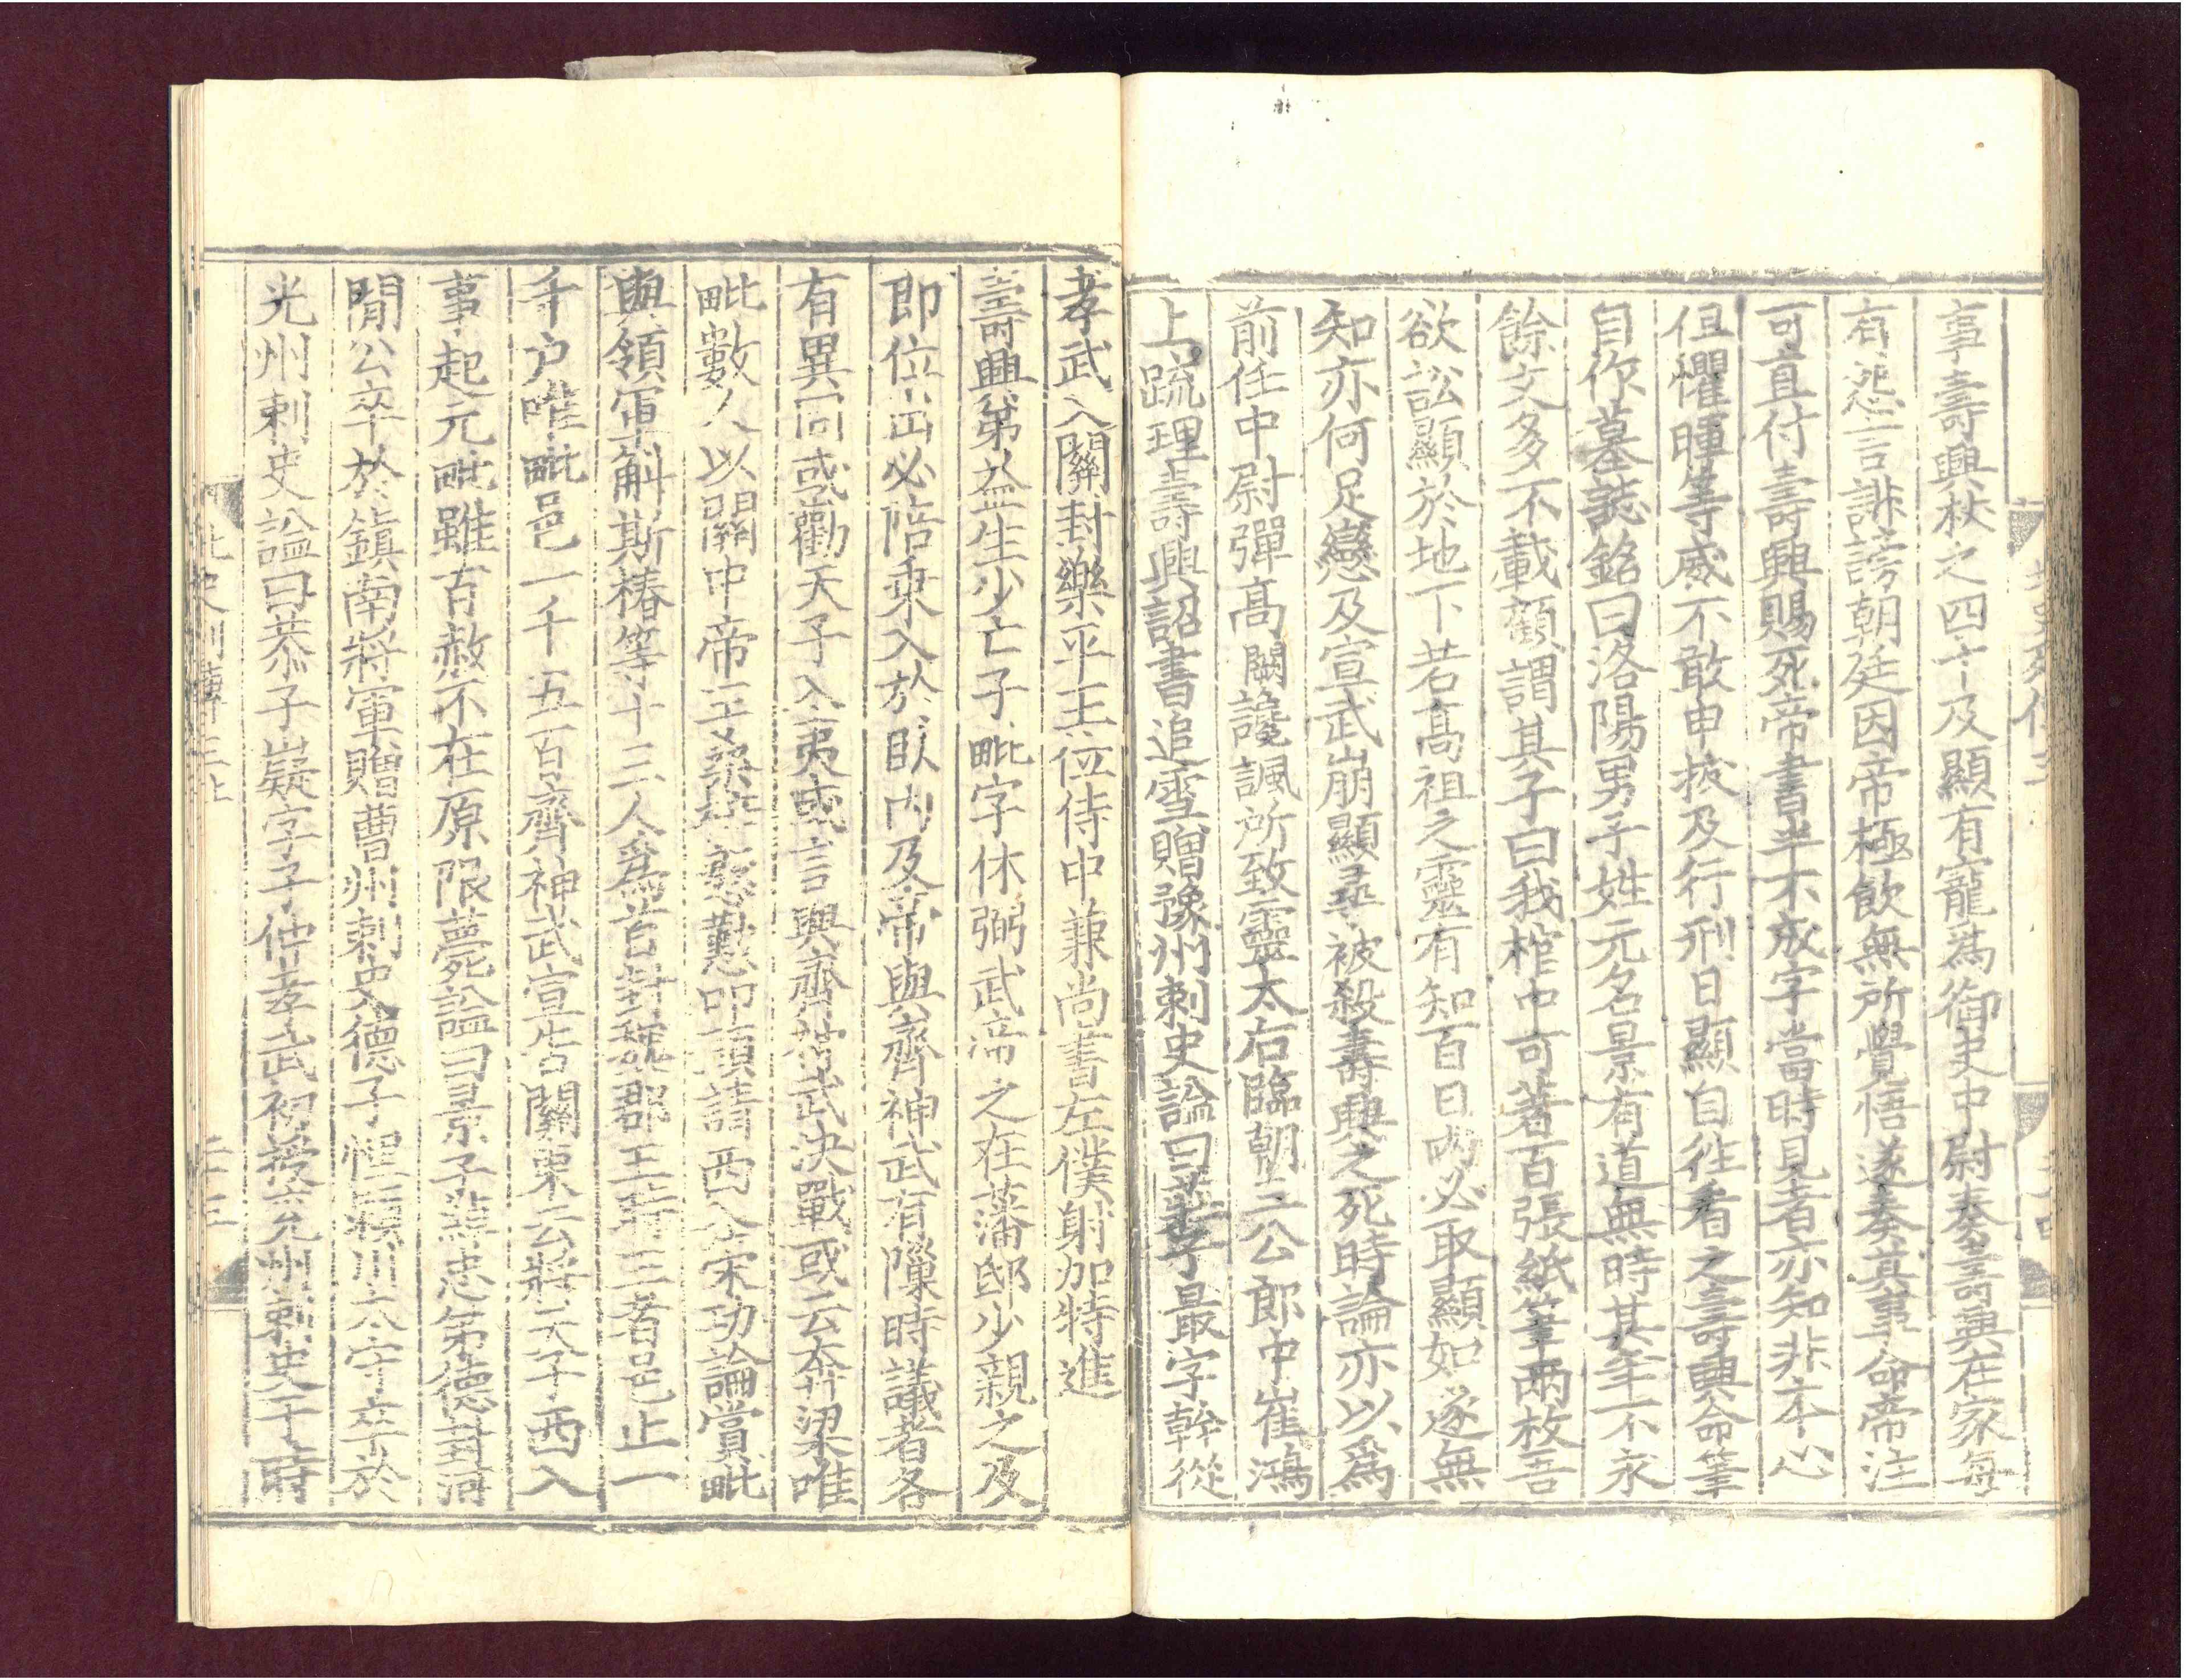 事壽興杖之四十及顯有寵為御史中尉奏壽興在家每
有怨言誹謗朝廷因帝極飲無所覺悟遂奏其事命帝注
可直付壽興賜死帝書半不成字當時見者亦知非本心
但懼暉等威不敢申拔及行刑日顯自往看之壽興命筆
自作墓誌銘曰洛陽男子姓元名景有道無時其年不永
餘文多不載顧謂其子曰我棺中可著百張紙筆兩枚吾
欲訟顯於地下若高祖之靈有知百日內必取顯如遂無
知亦何足戀及宣武崩顯尋被殺壽興之死時論亦以爲
前任中尉彈高闕讒諷所致靈太后臨朝三公郎中崔鴻
上疏理壽興詔書追雪贈豫州刺史諡曰莊子最字幹從
孝武入關封樂平王位侍中兼尚書左僕射加特進
壽興弟益生少亡子毗字休弼武帝之在藩邸少親之及
即位出必陪乗入於臥內及帝與齊神武有隟時議者各
有異同或勸天子入夷或言與齊神武決戰或云奔梁唯
毗數人以關中帝王桑梓慇懃叩頭請西入策功論賞毗
與領軍斛斯椿等十三人爲首封魏郡王時王者邑止一
千户唯毗邑一千五百齊神武宣告關東云將天子西入
事起元毗雖百赦不在原限薨諡曰景子綽忠弟德封河
間公卒於鎮南將軍贈曹州刺史德子悝潁川太守卒於
光州刺史諡曰恭子嶷字子仲孝武初授兗州刺史于時
北史列傳三